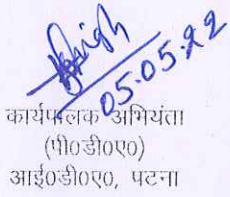 05.05.22
कार्यपालक अभियंता
(पी०डी०ए०)
आई०डी०ए०, पटना